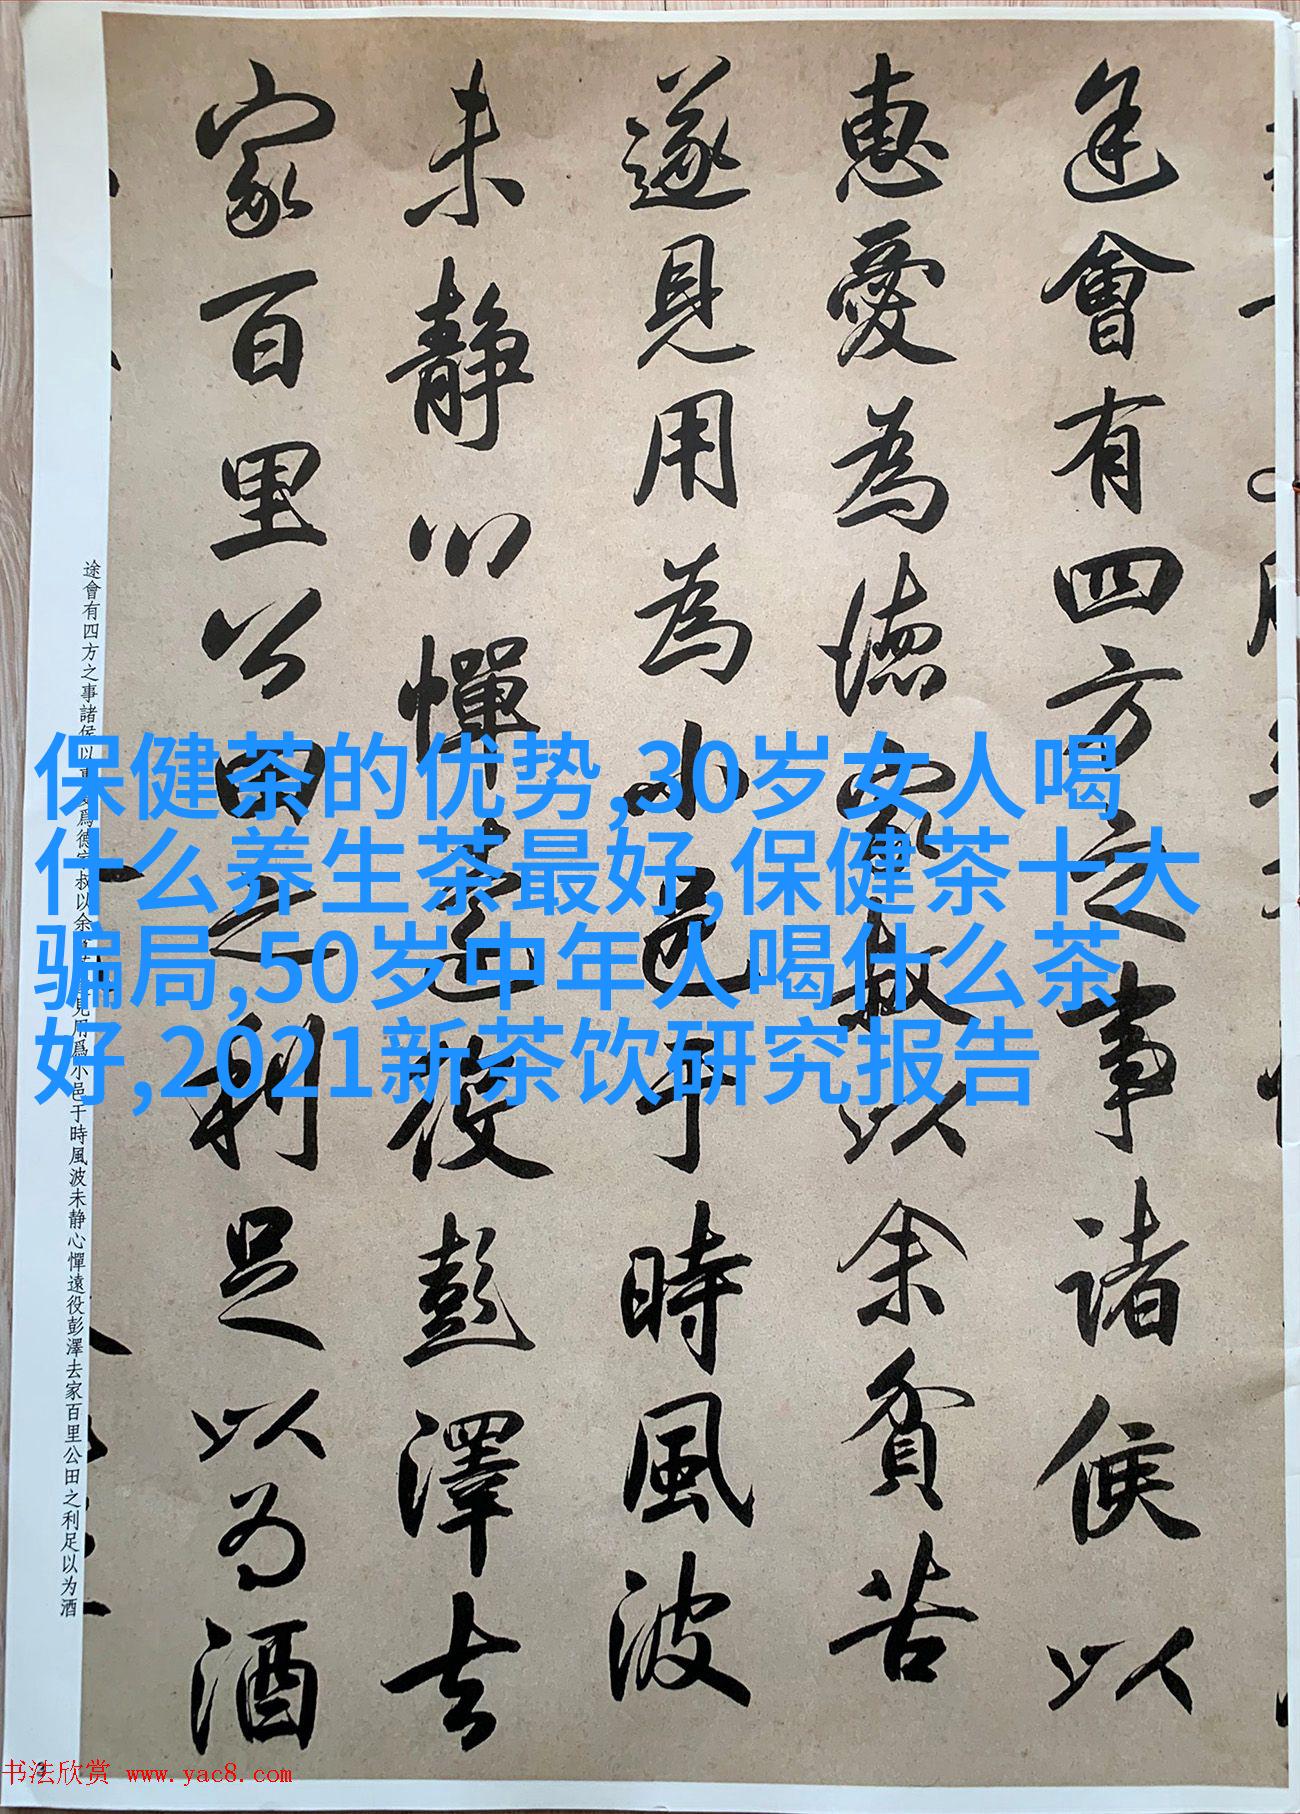 途會有四方之事諸侯以
惠愛為德家叔以余貧苦
遂見用為小邑于時風波
未静心憚遠役彭澤去
家百里公田之利足以为酒
保健茶的优势,30岁女人喝
什么养生茶最好,保健茶十大
骗局,50岁中年人喝什么茶
好,2021新茶饮研究报告
途會有四方之事諸侯以惠愛爲德家叔以余貧苦遂見用爲小邑于時風波未静心憚遠役彭澤去家百里公田之利足以为酒
书法欣赏 www.yac8.com